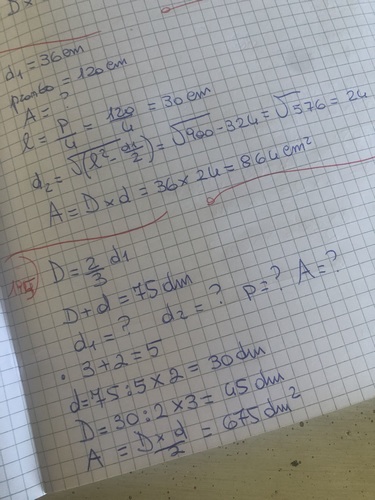 D×
d₁ = 36 cm
prombo = 120 cm
A = ?
l = P/4 = 120/4 = 30 cm
d₂ = √(l² - d1/2) = √900 - 324 = √576 = 24
A = D×d = 36×24 = 864 cm²
D = 2/3 d1
D+d = 75 dm
d₁ = ? d₂ = ? p = ? A = ?
3+2=5
d=75:5×2 = 30 dm
D = 30:2×3 = 45 dm
A = D×d/2 = 675 dm²